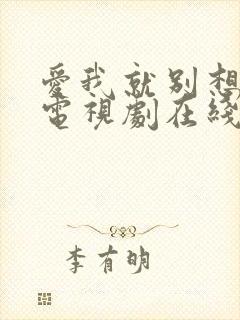 愛我就別想
電視劇在綫
李有明